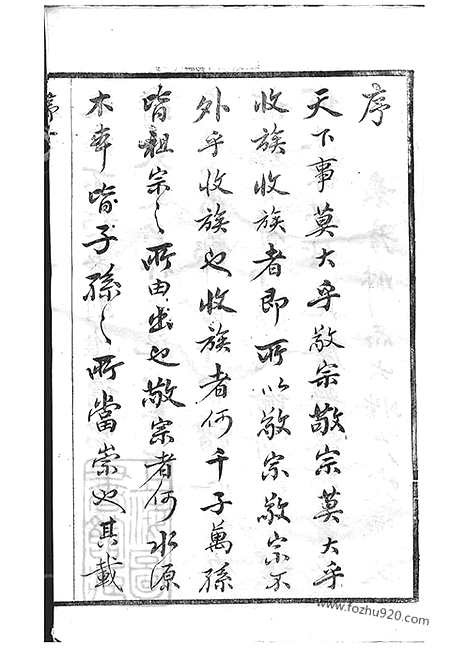 序
天下事莫大乎敬宗敬宗莫大乎
收族收族者即所以敬宗敬宗不
外乎收族也收族者何千子萬孫
皆祖宗之所由出也敬宗者何水源
木本皆子孫之所當崇也其載
序
www.fozhu920.com